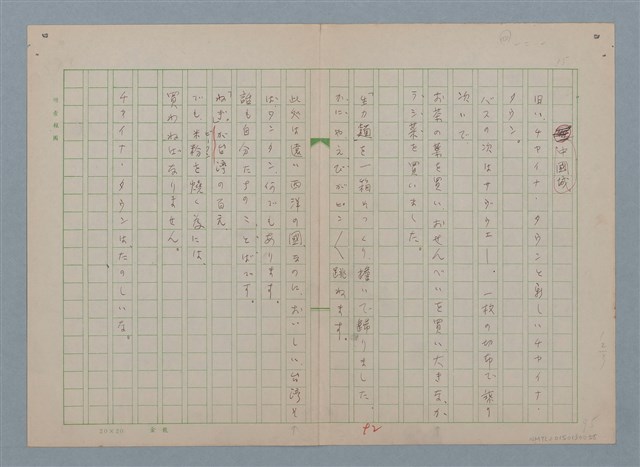 中國城
旧いチャイナ・タウンと新しいチャイナ・
タウン。
バスの次はサブウエー、一枚の切符で乗り
次いで
お茶の葉を買いおせんべいを買い大きなか
ラシ菜を買いました。
生力麺を一箱のつくり擔いで歸りました。
かにやえびがピンピン跳ねます。
此処は遠い西洋の國なのに、おいしい台湾そ
ば、タンタン、何でもあります。
誰も自分たちのことばです。
ねぎが台湾の百え
でも米粉を焼く為には、
買わねばなりません。
チャイナ・タウンは、たのしいな。